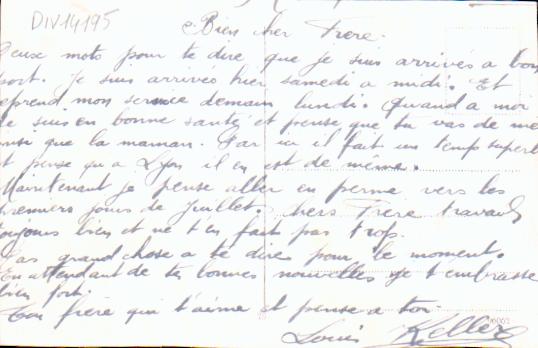 DIV14195
Bien cher Frere.
Deux mots pour te dire que je suis arrivés a bon
port. Je suis arrivés hier samedi a midi. Et
reprend mon service demain lundi. Quand a moi
Je suis en bonne santé et pense que tu vas de me
insi que la maman. Par ici il fait un temp superb
et pense qu'a Lyon il en est de même.
Maintenant je pense aller en perme vers les
premiers jours de Juillet. chers Frere travail
toujours bien et ne t'en fait pas trop.
Pas grand chose a te dire pour le moment.
En attendant de tes bonnes nouvelles je t'embrasse
bien fort.
Ton frère qui t'aime et pense a toi.
Louis Keller